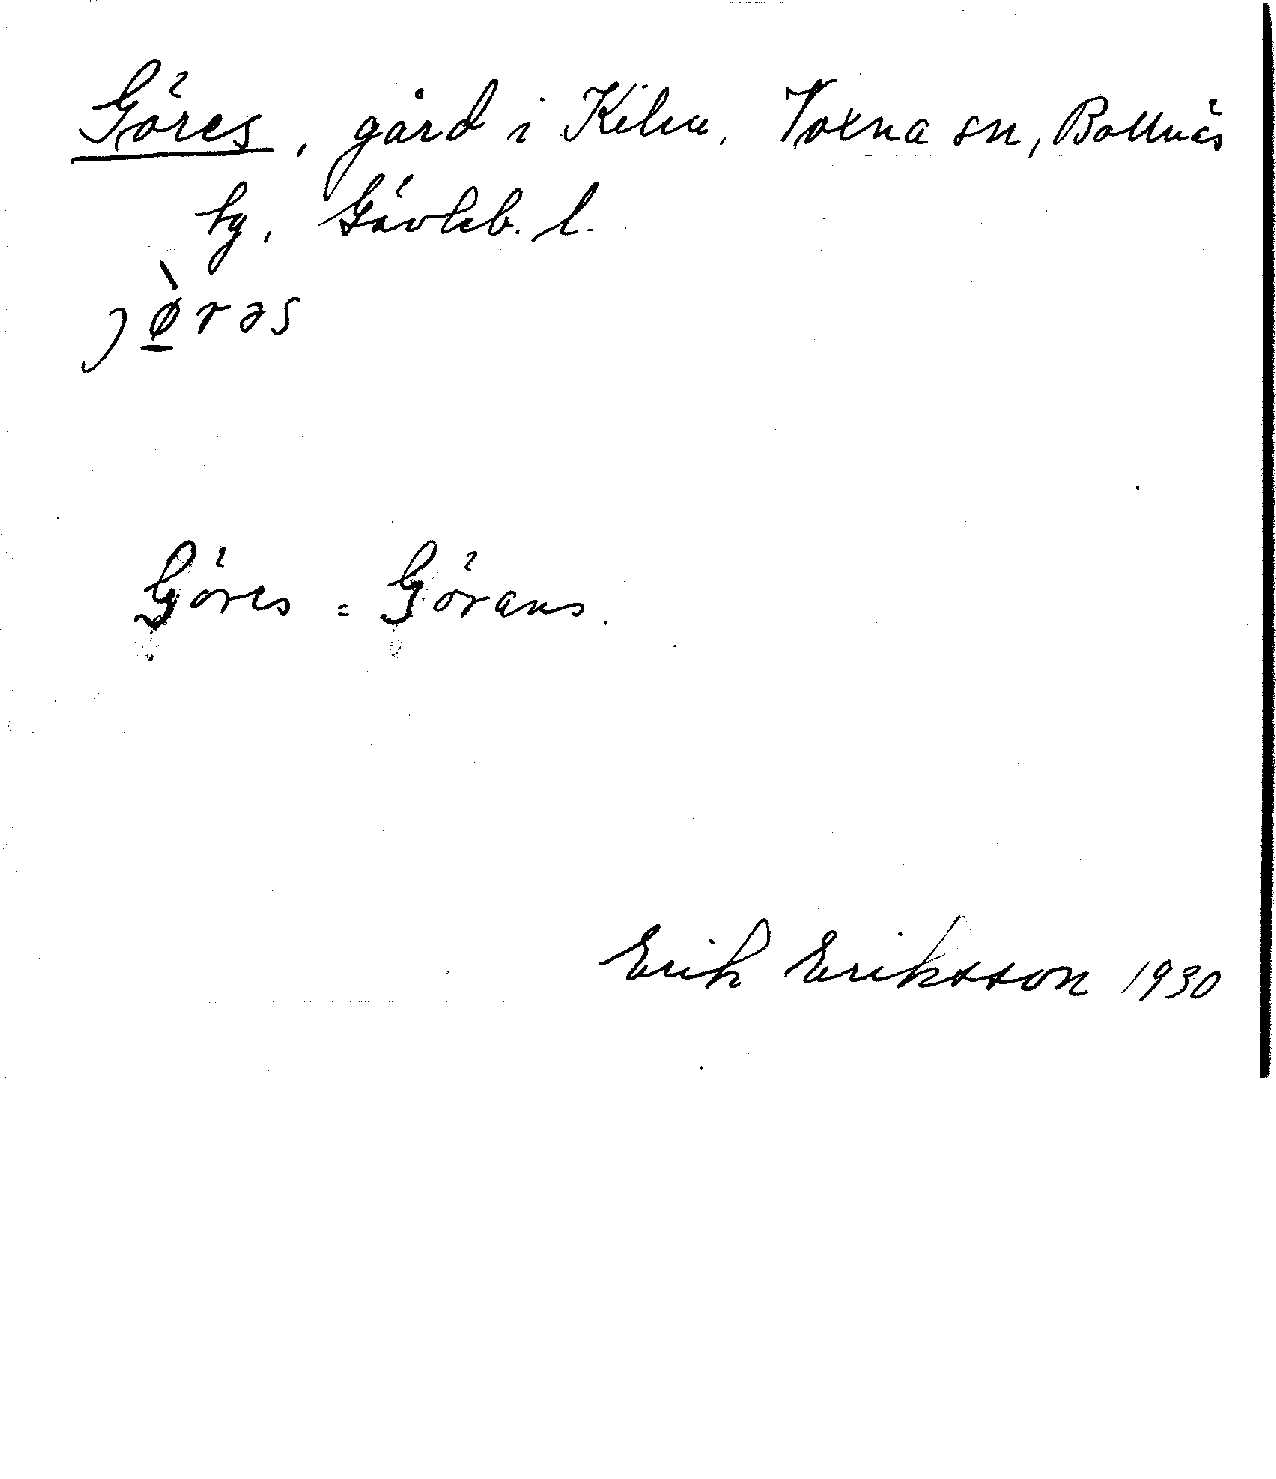 Göres, gård i Kilen, Voxna sn, Bollnäs
tg, Gävleb. l.
jø̀rəs
Göres = Görans.
Erik Eriksson 1930